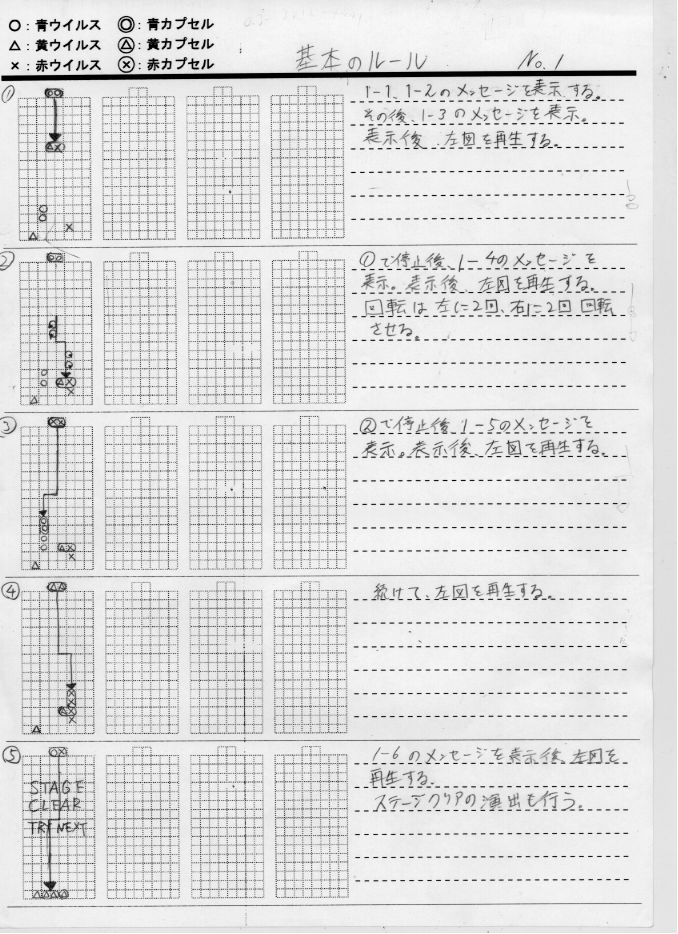 ○：青ウイルス ◎：青カプセル
△：黄ウイルス △：黄カプセル
×：赤ウイルス ⊗：赤カプセル
基本のルール No.1
①
1-1、1-2のメッセージを表示する。
その後、1-3のメッセージを表示。
表示後、左図を再生する。
②
①で停止後、1-4のメッセージを
表示。表示後、左図を再生する。
回転は左に2回、右に2回 回転
させる。
③
②で停止後、1-5のメッセージを
表示。表示後、左図を再生する。
④
続けて、左図を再生する。
⑤
STAGE
CLEAR
TRY NEXT
1-6のメッセージを表示後、左図を
再生する。
ステージクリアの演出も行う。